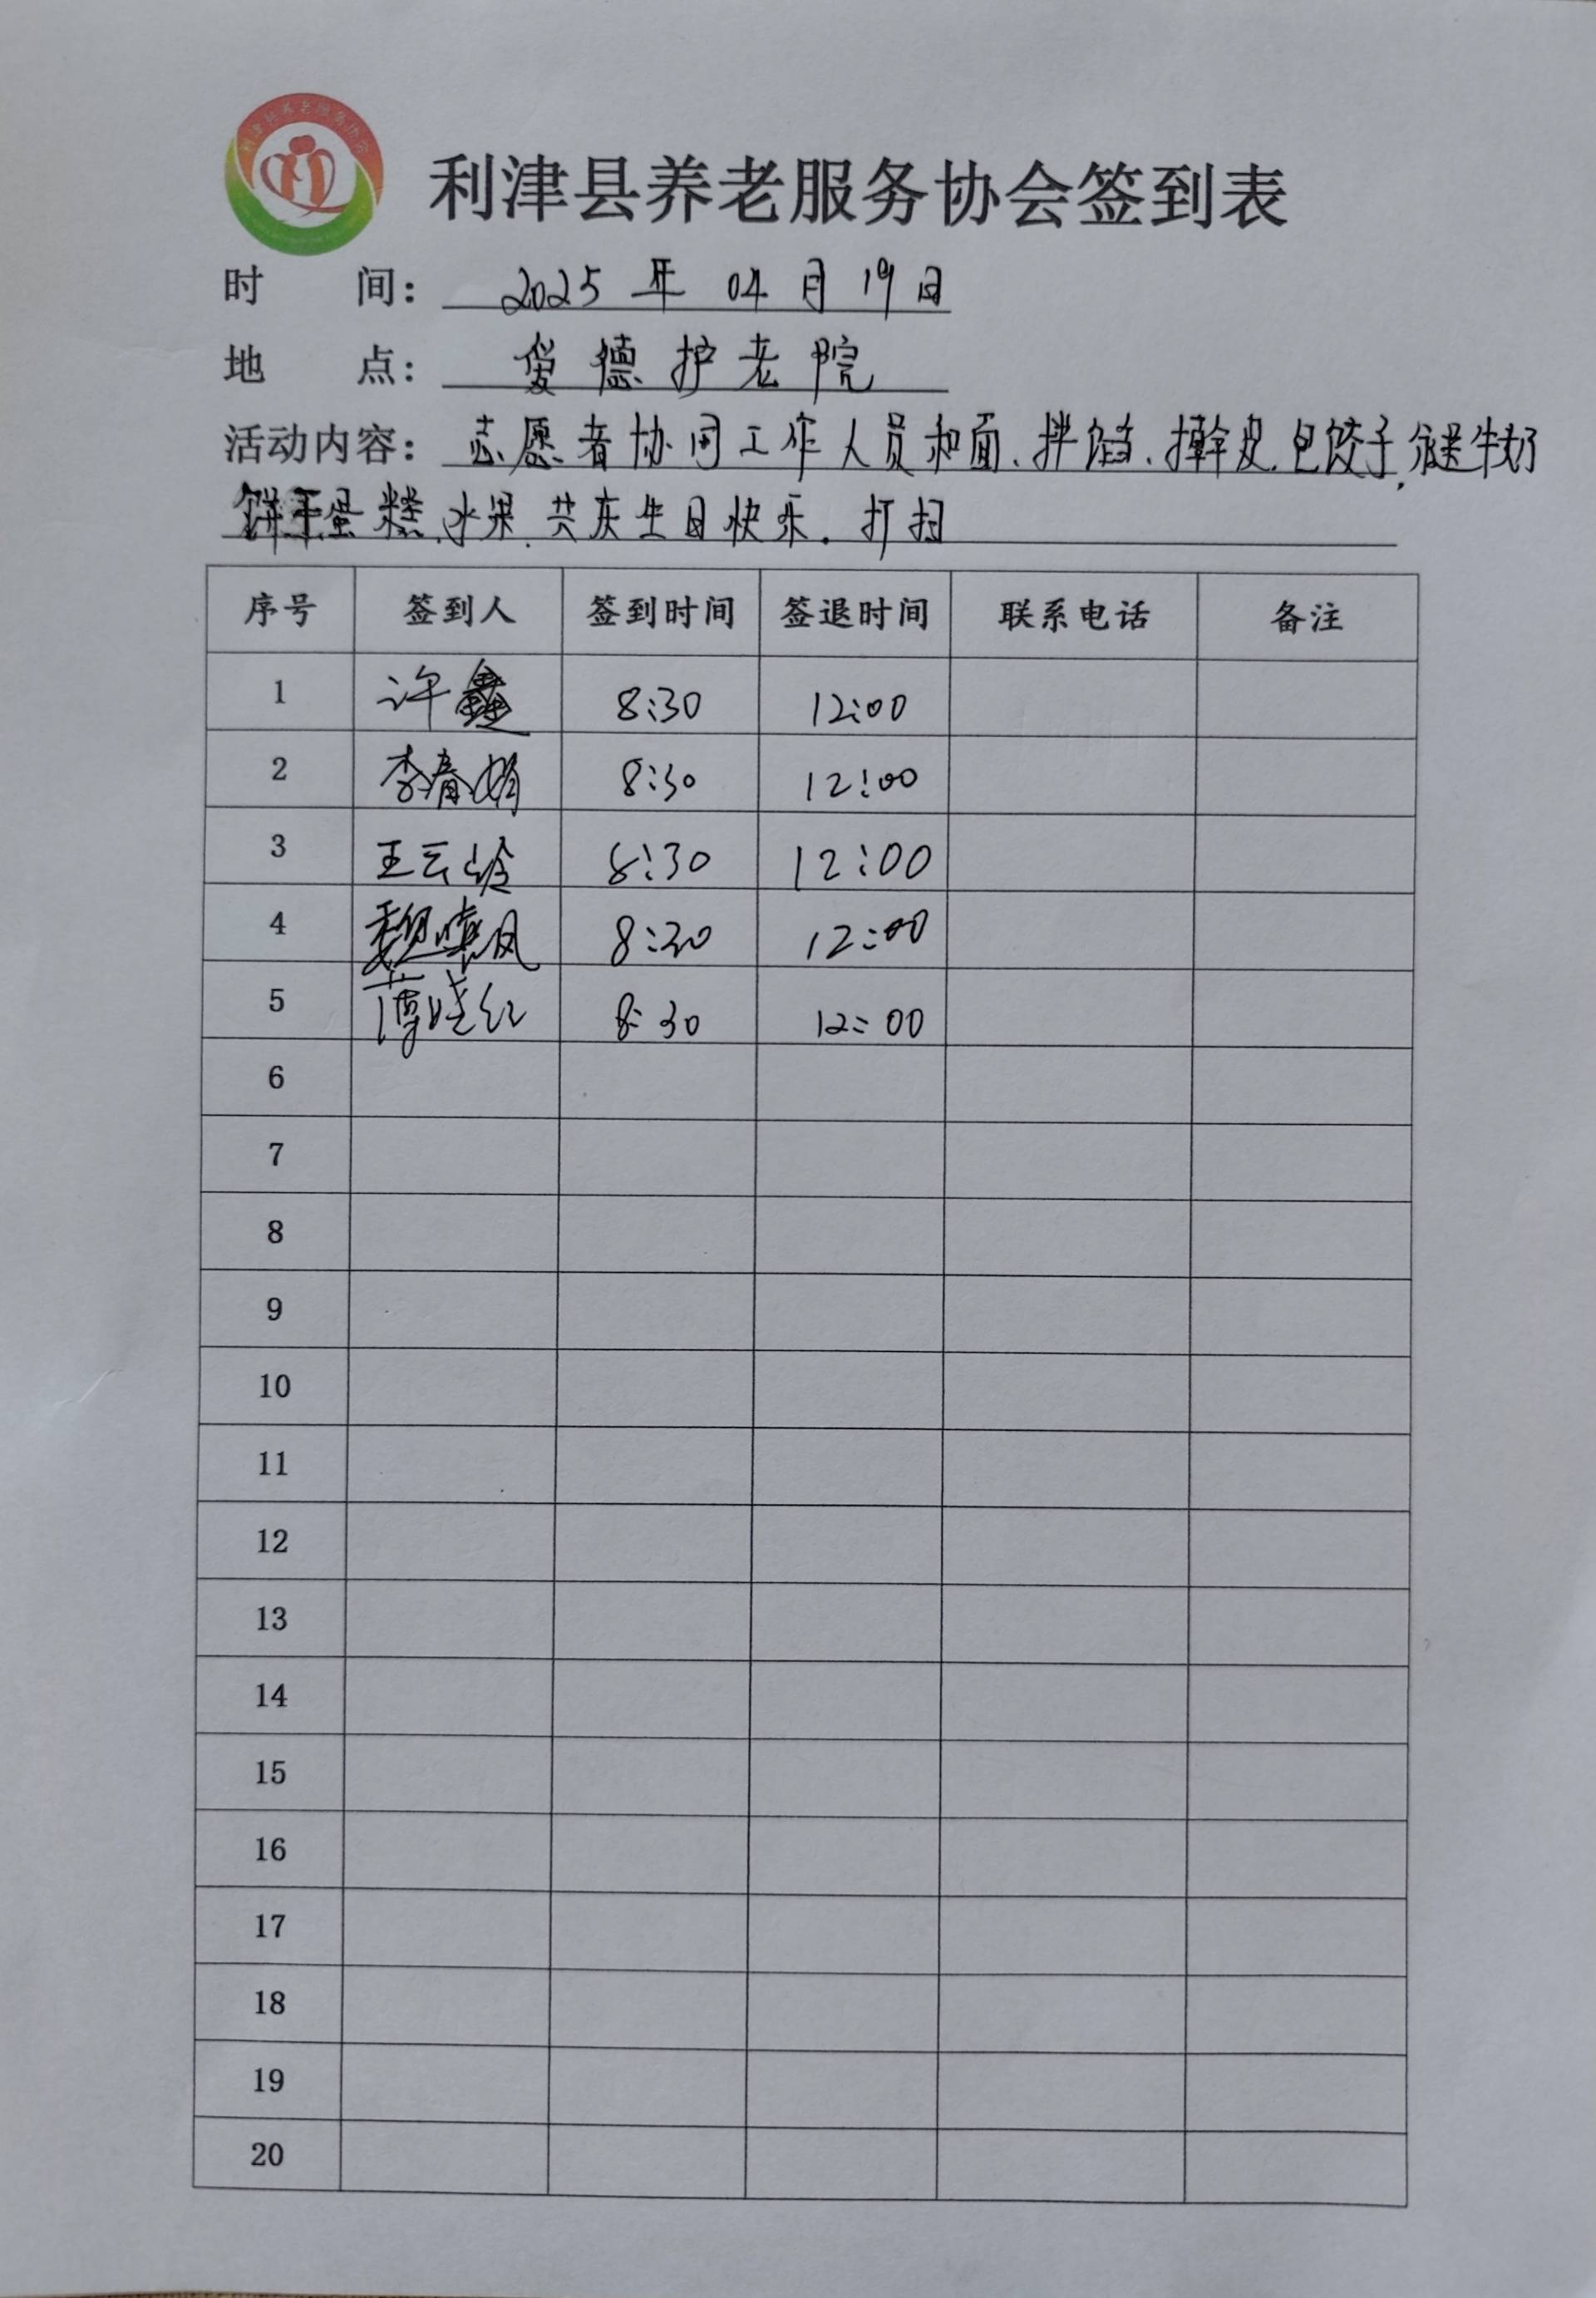 利津县养老服务协会
利津县养老服务协会签到表
时 间： 2025 年 04 月 19 日
地 点： 爱德护老院
活动内容： 志愿者协同工作人员和面、拌馅、擀皮、包饺子，牛奶
饼干蛋糕、水果、共庆生日快乐。打扫
序号 签到人 签到时间 签退时间 联系电话 备注
1 许鑫 8:30 12:00
2 李春娟 8:30 12:00
3 王云 8:30 12:00
4 魏 凤 8:30 12:00
5 薄晓红 8:30 12:00
6
7
8
9
10
11
12
13
14
15
16
17
18
19
20